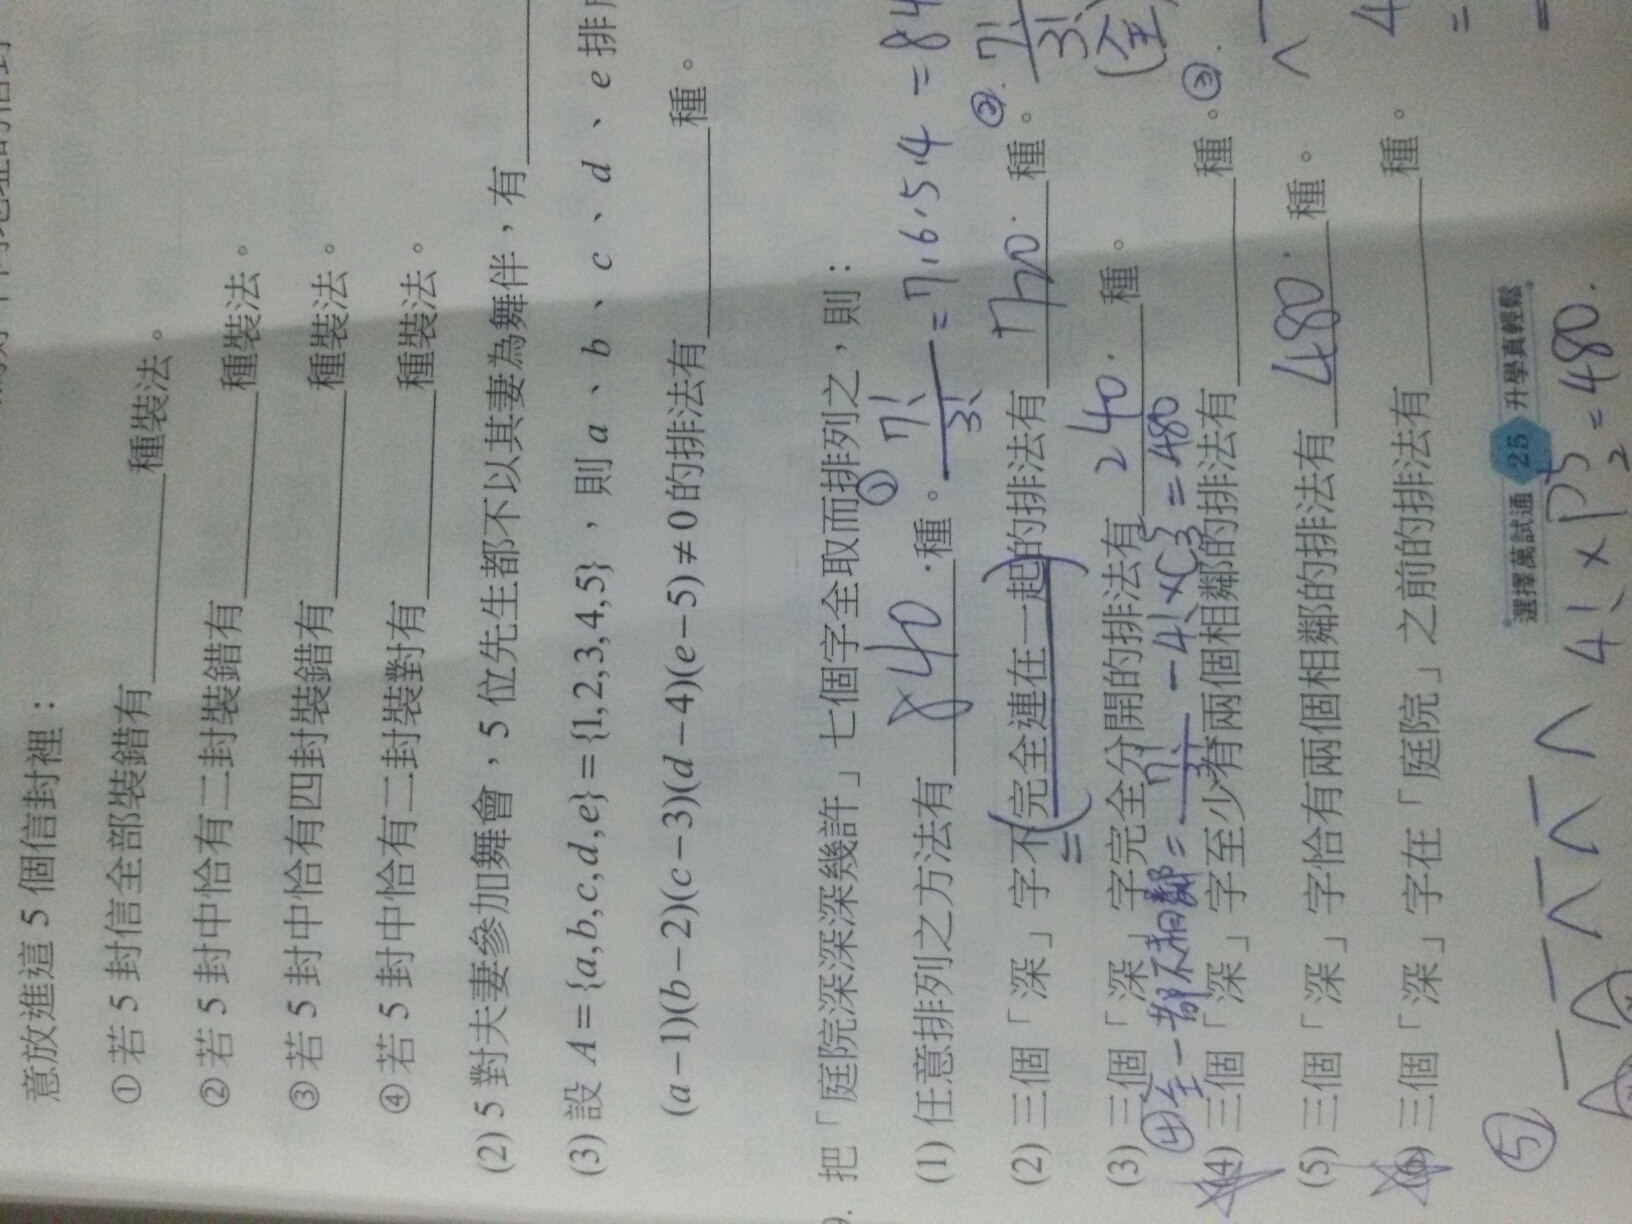 意放進這 5 個信封裡：
①若 5 封信全部裝錯有種裝法。
②若 5 封中恰有二封裝錯有種裝法。
③若 5 封中恰有四封裝錯有種裝法。
④若 5 封中恰有二封裝對有種裝法。
(2) 5 對夫妻參加舞會，5 位先生都不以其妻為舞伴，有
(3) 設 A={a,b,c,d,e}={1,2,3,4,5}，則 a、b、c、d、e 排
(a−1)(b−2)(c−3)(d−4)(e−5)≠0 的排法有種。
9. 把「庭院深深深幾許」七個字全取而排列之，則：
(1) 任意排列之方法有 840 種。
① 7!/3! = 7·6·5·4 = 84
(2) 三個「深」字不完全連在一起的排法有 720 種。
② 7!/3!
(全
(3) 三個「深」字完全分開的排法有 240 種。
③
④ 全－都不相鄰 = 7!/3! − 4!×C⁵₃ = 480
(4) 三個「深」字至少有兩個相鄰的排法有種。
(5) 三個「深」字恰有兩個相鄰的排法有 480 種。
(6) 三個「深」字在「庭院」之前的排法有種。
選擇萬試通 25 升學真輕鬆
⑤
4! × P⁵₂ = 480.